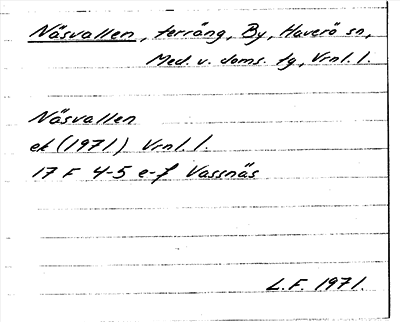 Näsvallen, terräng, By, Haverö sn,
Med. v. doms. tg, Vrml. l.
Näsvallen
ek (1971) Vrml. l.
17 F 4-5 e-f Vassnäs
L.F. 1971.